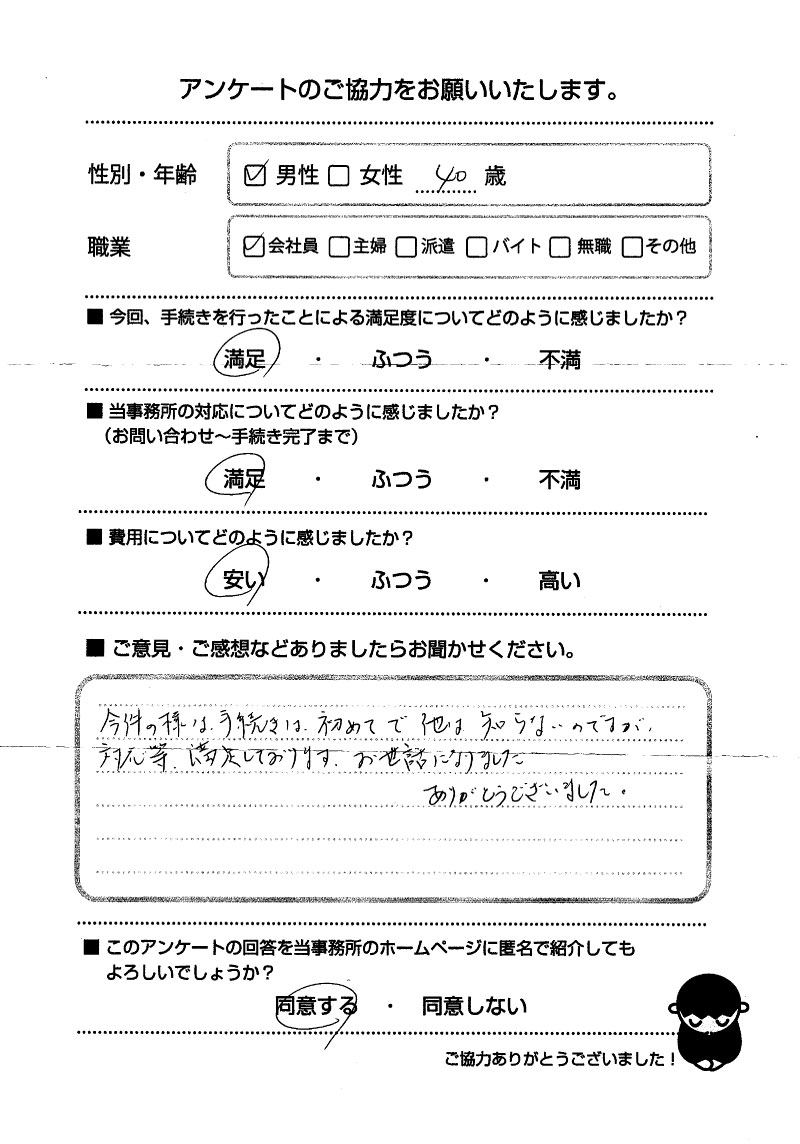 アンケートのご協力をお願いいたします。
性別・年齢 ☑ 男性 □ 女性 40 歳
職業 ☑ 会社員 □ 主婦 □ 派遣 □ バイト □ 無職 □ その他
■ 今回、手続きを行ったことによる満足度についてどのように感じましたか？
満足 ・ ふつう ・ 不満
■ 当事務所の対応についてどのように感じましたか？
（お問い合わせ～手続き完了まで）
満足 ・ ふつう ・ 不満
■ 費用についてどのように感じましたか？
安い ・ ふつう ・ 高い
■ ご意見・ご感想などありましたらお聞かせください。
今件の様は、手続きは、初めてで他は知らないのですが、
対応等、満足しております、お世話になりました
ありがとうございました。
■ このアンケートの回答を当事務所のホームページに匿名で紹介しても
よろしいでしょうか？
同意する ・ 同意しない
ご協力ありがとうございました！